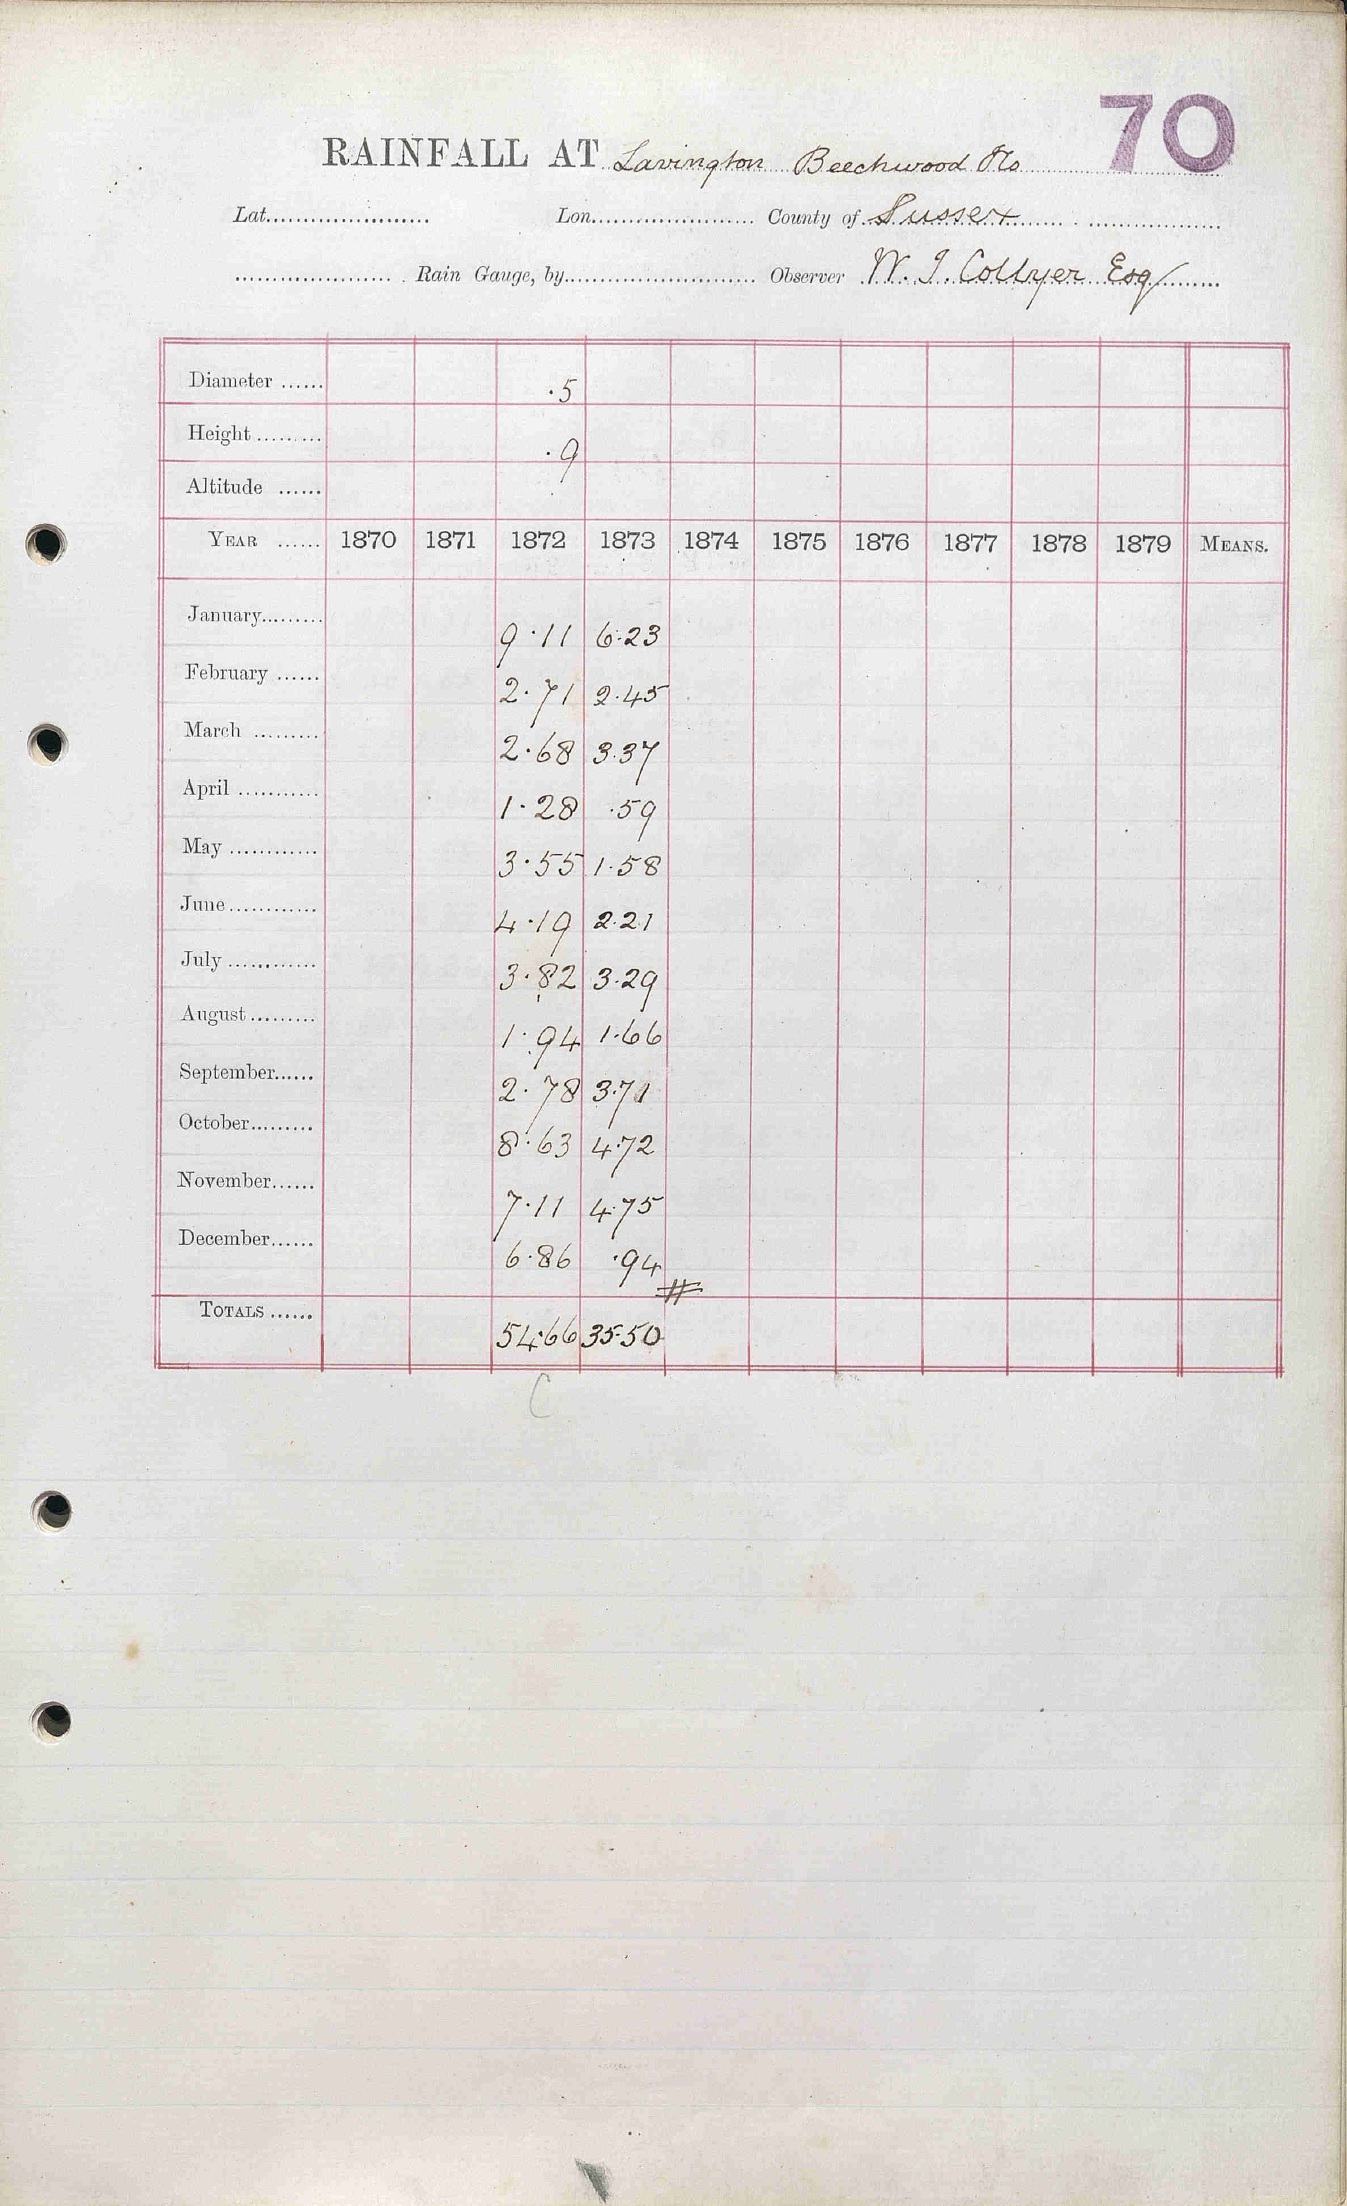 70
RAINFALL AT Lavington Beechwood Ho
Lat...................... Lon...................... County of Sussex
...................... Rain Gauge, by.......................... Observer W. J. Collyer Esq
Diameter ...... ·5
Height ......... ·9
Altitude ......
YEAR ...... 1870 1871 1872 1873 1874 1875 1876 1877 1878 1879 MEANS.
January......... 9·11 6·23
February ...... 2·71 2·45
March ......... 2·68 3·37
April ........... 1·28 ·59
May ............ 3·55 1·58
June............ 4·19 2·21
July ............ 3·82 3·29
August......... 1·94 1·66
September...... 2·78 3·71
October......... 8·63 4·72
November...... 7·11 4·75
December...... 6·86 ·94
TOTALS ...... 54·66 35·50
C